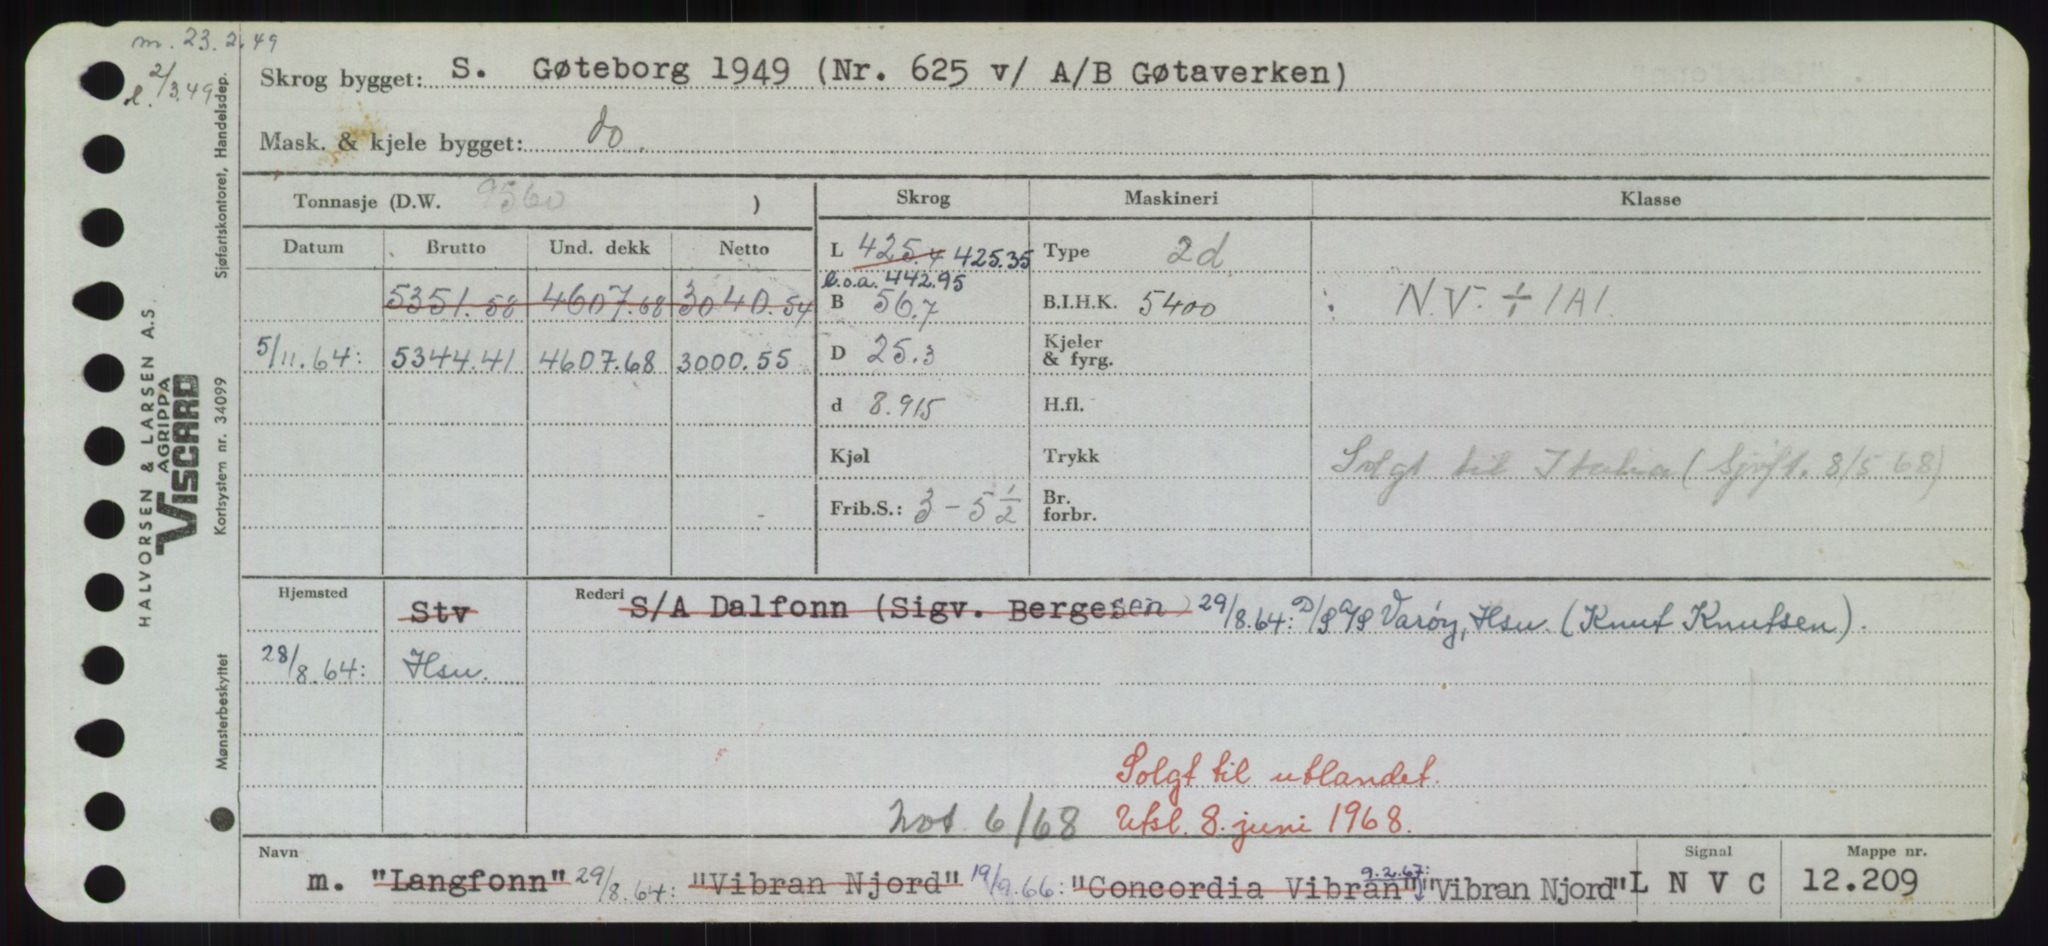 m. 23.2.49
l. 2/3.49
Skrog bygget: S. Gøteborg 1949 (Nr. 625 v/ A/B Gøtaverken)
Mask. & kjele bygget: do.
Tonnasje (D.W. 9560 )
Skrog Maskineri Klasse
Datum Brutto Und. dekk Netto
L 425.4 425.35 Type 2d
l.o.a. 442.95
5351.58 4607.68 3040.54 B 56.7 B.I.H.K. 5400 N.V. ÷ 1A1.
5/11.64: 5344.41 4607.68 3000.55 D 25.3 Kjeler & fyrg.
d 8.915 H.fl.
Kjøl Trykk Solgt til Italia (Sjøft. 8/5 68)
Frib.S.: 3 - 5 1/2 Br. forbr.
Hjemsted Stv Rederi S/A Dalfonn (Sigv. Bergesen) 29/8.64: D/S A/S Varøy, Hsu. (Knut Knutsen).
28/8.64: Hsu.
Solgt til utlandet.
Not 6/68 Utsl. 8. juni 1968.
Navn Signal Mappe nr.
m. "Langfonn" 29/8.64: "Vibran Njord" 19/9.66: "Concordia Vibran" 9.2.67: "Vibran Njord" L N V C 12.209
Sjøfartskontoret, Handelsdep.
HALVORSEN & LARSEN A.S.
AGRIPPA
VISCARD
Kortsystem nr. 34099
Mønsterbeskyttet